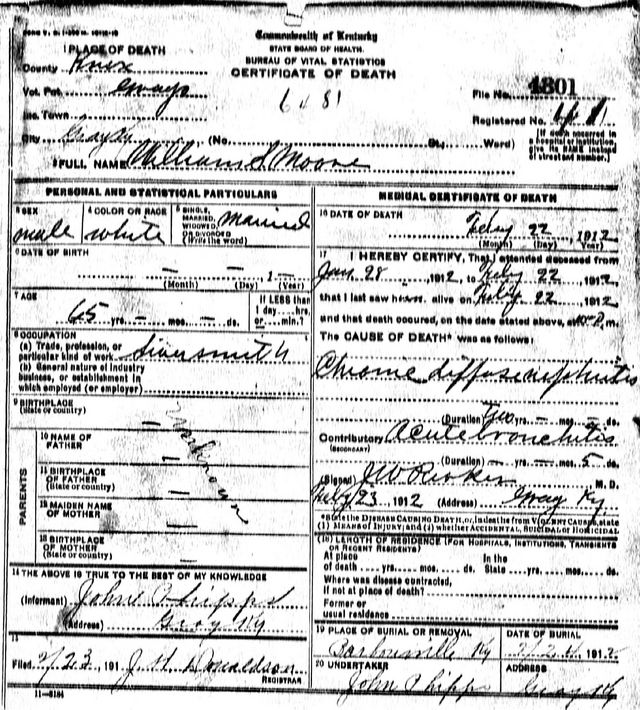 Commonwealth of Kentucky
STATE BOARD OF HEALTH.
BUREAU OF VITAL STATISTICS
CERTIFICATE OF DEATH
1 PLACE OF DEATH
County Knox
Vot. Pct. Grays
Inc. Town
City Gray Ky (No. St., Ward)
6481
File No. 4801
Registered No.
[If death occurred in a hospital or institution, give its NAME instead of street and number.]
2 FULL NAME William S Moore
PERSONAL AND STATISTICAL PARTICULARS
3 SEX male
4 COLOR OR RACE white
5 SINGLE, MARRIED, WIDOWED OR DIVORCED (Write the word) Married
6 DATE OF BIRTH
— — 1—
(Month) (Day) (Year)
7 AGE
65 yrs. — mos. — ds.
If LESS than 1 day ... hrs. or ... min.?
8 OCCUPATION
(a) Trade, profession, or particular kind of work Silversmith
(b) General nature of Industry business, or establishment in which employed (or employer)
9 BIRTHPLACE
(State or country)
PARENTS
10 NAME OF FATHER
11 BIRTHPLACE OF FATHER
(State or country)
12 MAIDEN NAME OF MOTHER
13 BIRTHPLACE OF MOTHER
(State or country)
Unknown
14 THE ABOVE IS TRUE TO THE BEST OF MY KNOWLEDGE
(Informant) John Phipps
(Address) Gray Ky
15
Filed 2/23, 191 J. H. Donaldson
REGISTRAR
11-3184
MEDICAL CERTIFICATE OF DEATH
16 DATE OF DEATH
Feby 22 1912
(Month) (Day) (Year)
17 I HEREBY CERTIFY, That I attended deceased from
Jan 28, 1912, to Feby 22, 1912,
that I last saw him alive on Feby 22, 1912
and that death occured, on the date stated above, at 10 P. m.
The CAUSE OF DEATH* was as follows:
Chronic diffuse nephritis
(Duration) Two yrs. — mos. — ds.
Contributory Acute bronchitis
(SECONDARY)
(Duration) — yrs. — mos. 5 ds.
(Signed) J W Parker M. D.
Feby 23, 1912 (Address) Gray Ky
*State the DISEASE CAUSING DEATH, or, in deaths from VIOLENT CAUSES, state
(1) MEANS OF INJURY; and (2) whether ACCIDENTAL, SUICIDAL or HOMICIDAL
(18) LENGTH OF RESIDENCE (FOR HOSPITALS, INSTITUTIONS, TRANSIENTS OR RECENT RESIDENTS)
At place of death yrs. mos. ds. In the State yrs. mos. ds.
Where was disease contracted,
if not at place of death?
Former or
usual residence
19 PLACE OF BURIAL OR REMOVAL
Barbourville Ky
DATE OF BURIAL
1912
20 UNDERTAKER
John Phipps
ADDRESS
Gray Ky